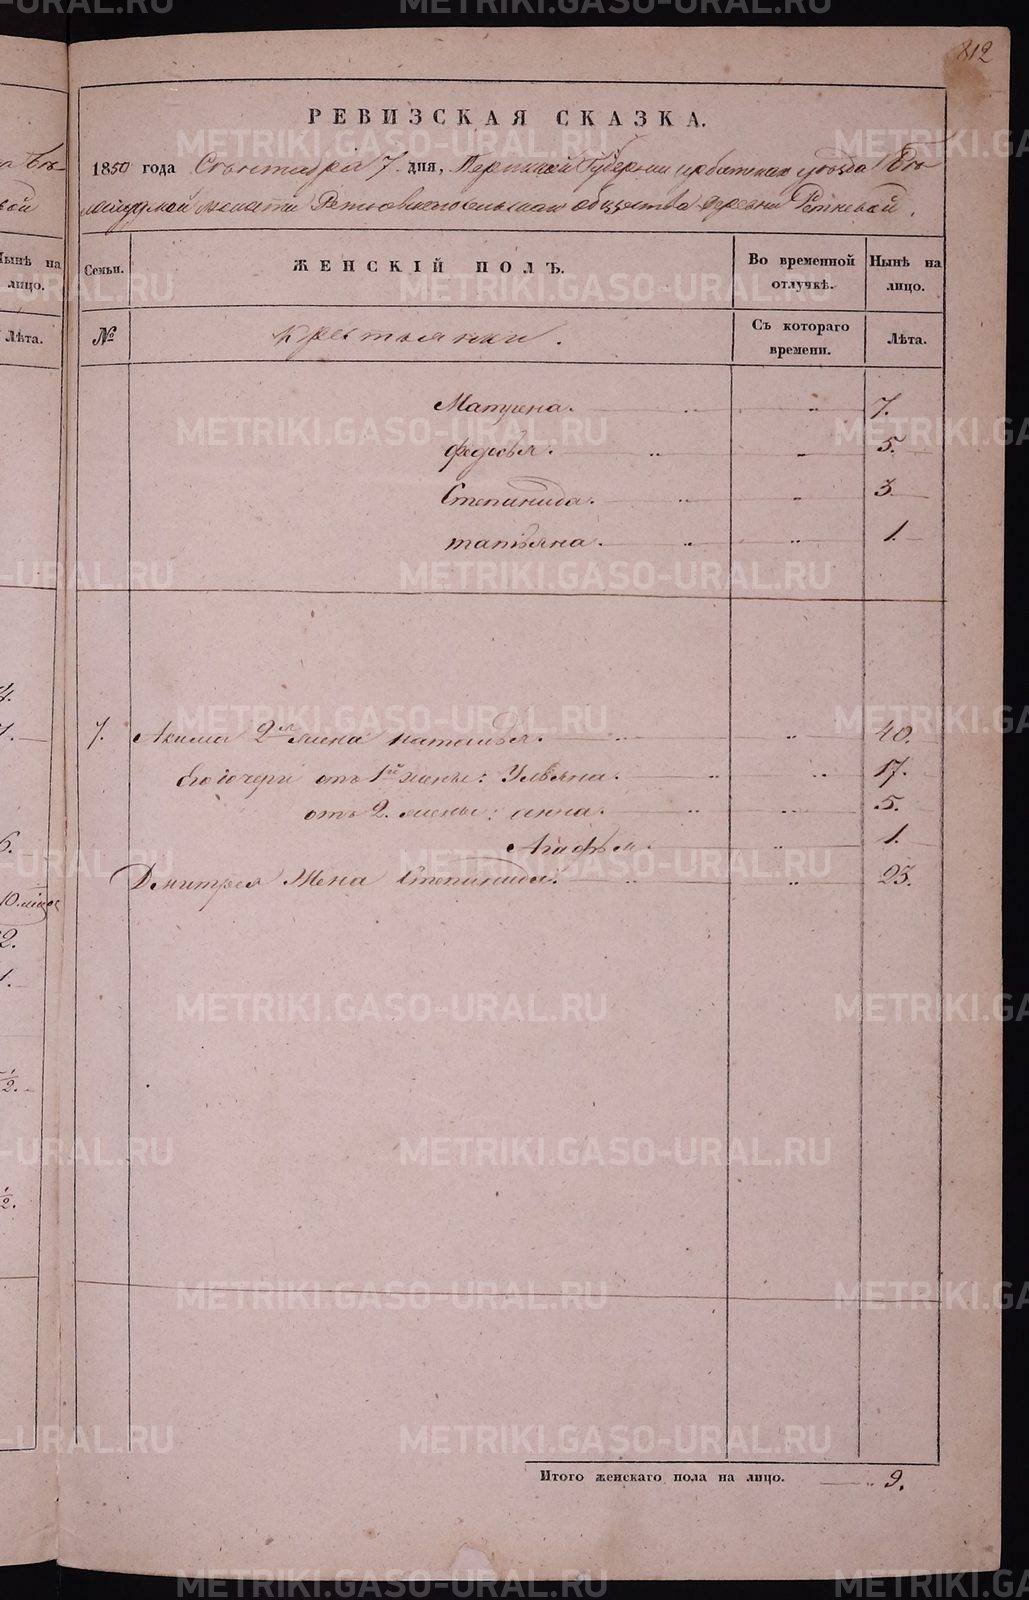 812
РЕВИЗСКАЯ СКАЗКА.
1850 года Сентября 7. дня, Пермской Губернии Ирбитскаго уезда Бе-
лослудской волости Ретневскаго сельскаго общества деревни Ретневой.
Семьи. ЖЕНСКІЙ ПОЛЪ. Во временной отлучкѣ. Нынѣ на лицо.
№ Крестьянки. Съ котораго времени. Лѣта.
Матрена. 7.
Федосья. 5.
Степанида. 3.
татьяна. 1.
7. Акима 2я жена наталья. 40.
Его дочери отъ 1й жены: Ульяна. 17.
отъ 2. жены: анна. 5.
Агафья. 1.
Дмитрея Жена Степанида. 23.
Итого женскаго пола на лицо. 9.
METRIKI.GASO-URAL.RU